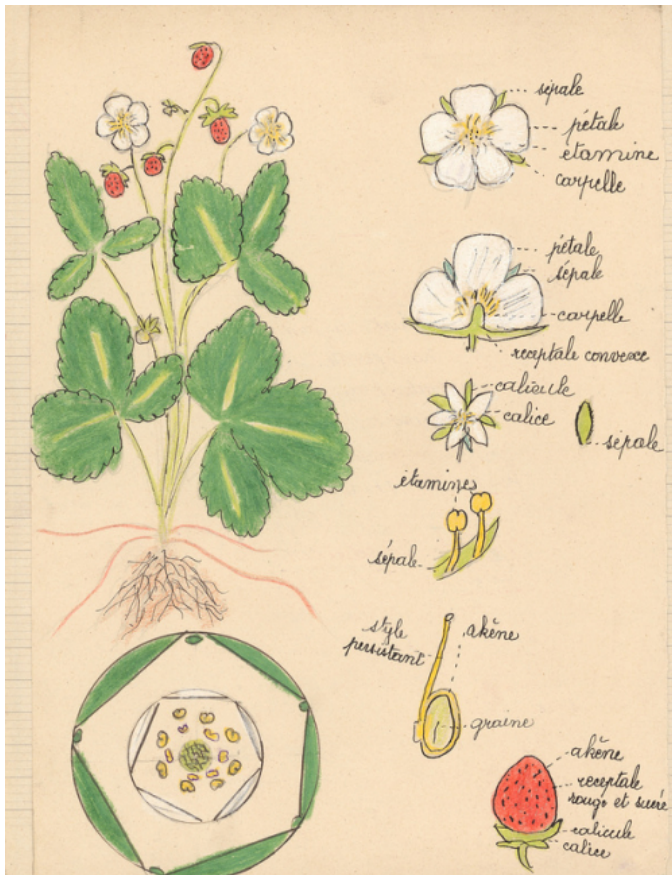 sépale
pétale
étamine
carpelle
pétale
sépale
carpelle
receptale convexe
calicule
calice
sépale
étamines
sépale
style
persistant
akène
graine
akène
receptale
rouge et sucré
calicule
calice